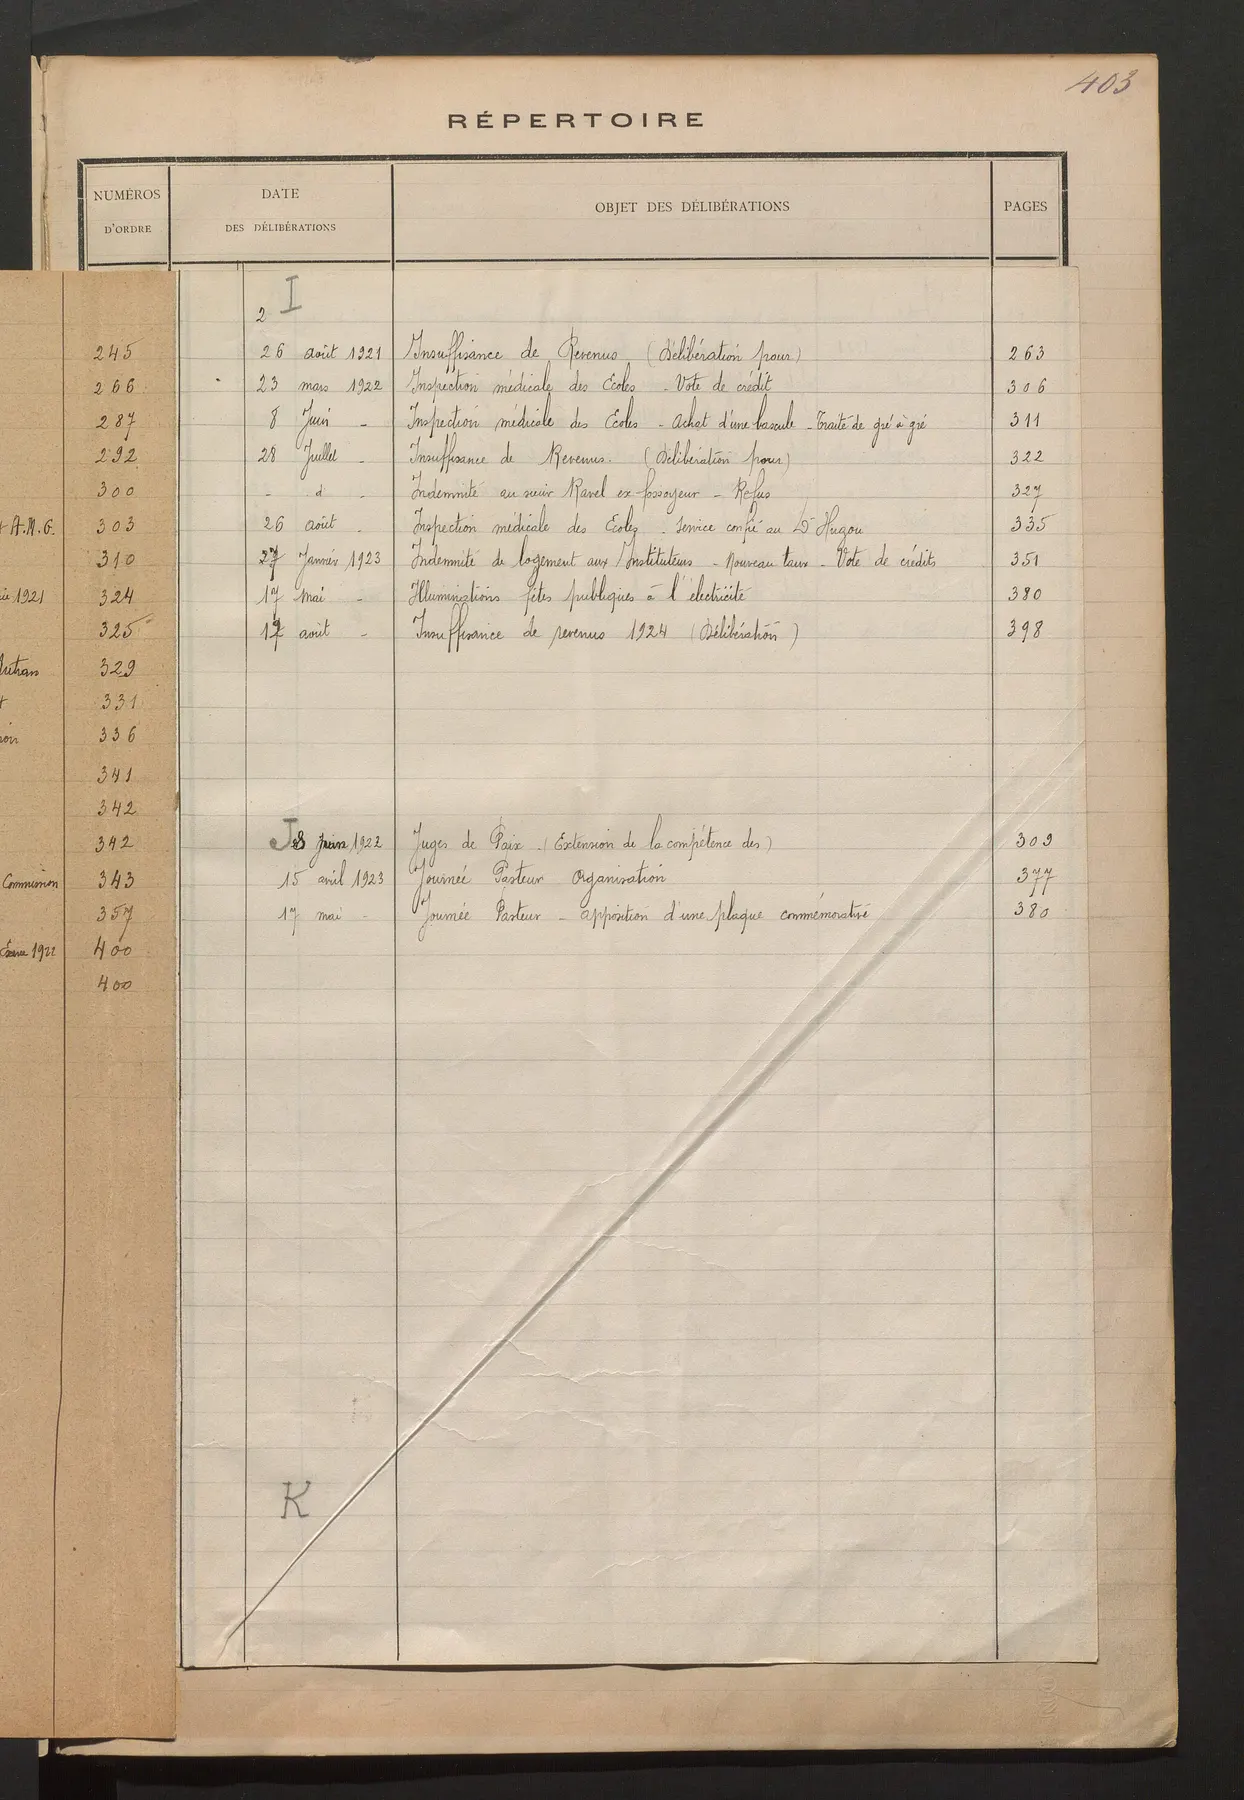 403
RÉPERTOIRE
NUMÉROS D'ORDRE
DATE DES DÉLIBÉRATIONS
OBJET DES DÉLIBÉRATIONS
PAGES
I
2
26 août 1921 Insuffisance de Revenus. (Délibération pour) 263
23 mars 1922 Inspection médicale des Ecoles - Vote de crédit 306
8 Juin - Inspection médicale des Ecoles - Achat d'une bascule - Traité de gré à gré 311
28 Juillet - Insuffisance de Revenus. (Délibération pour) 322
- d - Indemnité au sieur Ravel ex fossoyeur - Refus 327
26 août - Inspection médicale des Ecoles - Service confié au Dr Hugou 335
27 Janvier 1923 Indemnité de logement aux Instituteurs - Nouveau taux - Vote de crédits 351
17 mai - Illuminations fêtes publiques à l'électricité 380
17 août - Insuffisance de revenus 1924 (Délibération) 398
J
8 Juin 1922 Juges de Paix. (Extension de la compétence des) 309
15 avril 1923 Journée Pasteur Organisation 377
17 mai - Journée Pasteur - apposition d'une plaque commémorative 380
K
245
266
287
292
300
A.M.G. 303
310
1921 324
325
329
331
336
341
342
342
Commission 343
357
1922 400
400